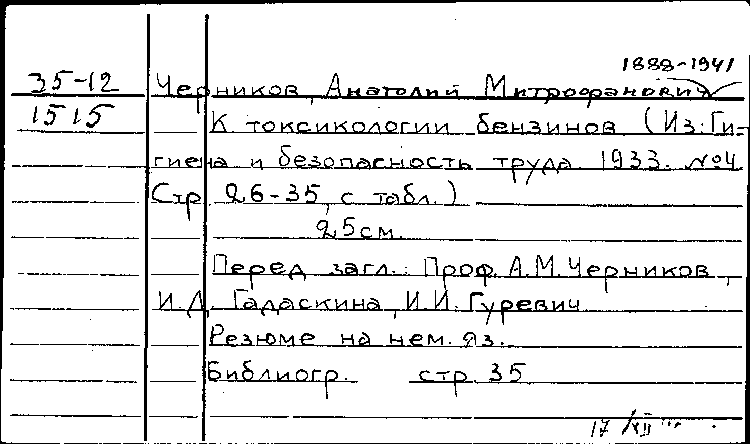 1888-1941
35-12 Черников, Анатолий Митрофанович
1515 К токсикологии бензинов (Из: Ги-
гиена и безопасность труда 1933. №4
Стр 26-35, с табл.)
25 см.
Перед загл.: Проф. А.М. Черников,
И.Д. Гадаскина, И.И. Гуревич
Резюме на нем. яз.
Библиогр. стр. 35
17/XII